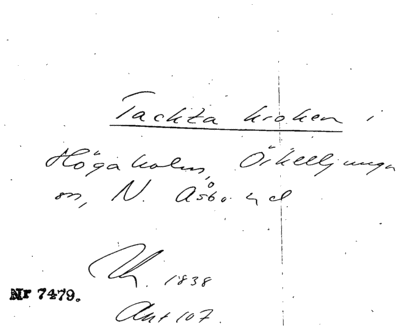 Tackta kroken i
Högaholm, Örkelljunga
sn, N. Åsbo hd
1838
Nr 7479.
Akt 107.